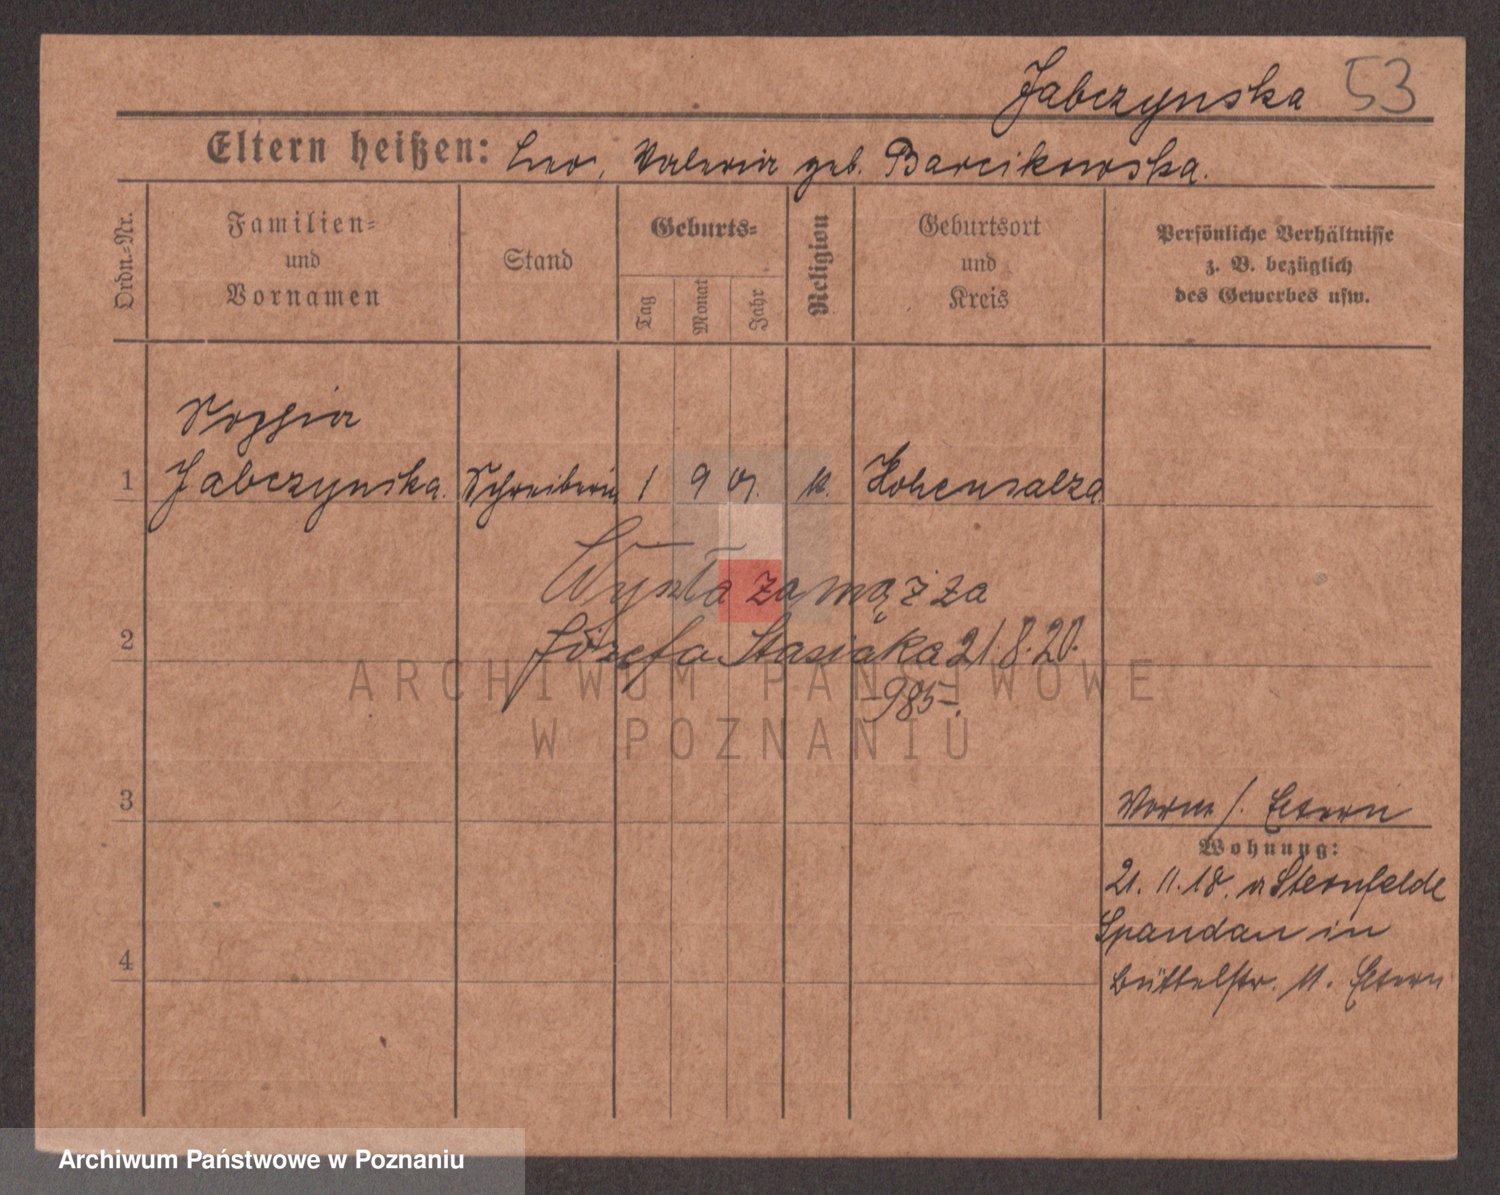 Jabczynska 53
Eltern heißen: Leo, Valeria geb. Barcikowska.
Ordn.-Nr.
Familien- und Vornamen
Stand
Geburts-
Tag
Monat
Jahr
Religion
Geburtsort und Kreis
Persönliche Verhältnisse
z. B. bezüglich
des Gewerbes usw.
Sophia
1 Jabczynska. Schreiberin 1 9 01. k. Hohensalza
Wyszła zamąż za
2 Józefa Stasiaka 21.8.20.
-985-.
ARCHIWUM PAŃSTWOWE
W POZNANIU
3
Eltern
Wohnung:
21. 11. 18. Sternfelde
Spandau in
4
Büttelstr. 11. Eltern
Archiwum Państwowe w Poznaniu